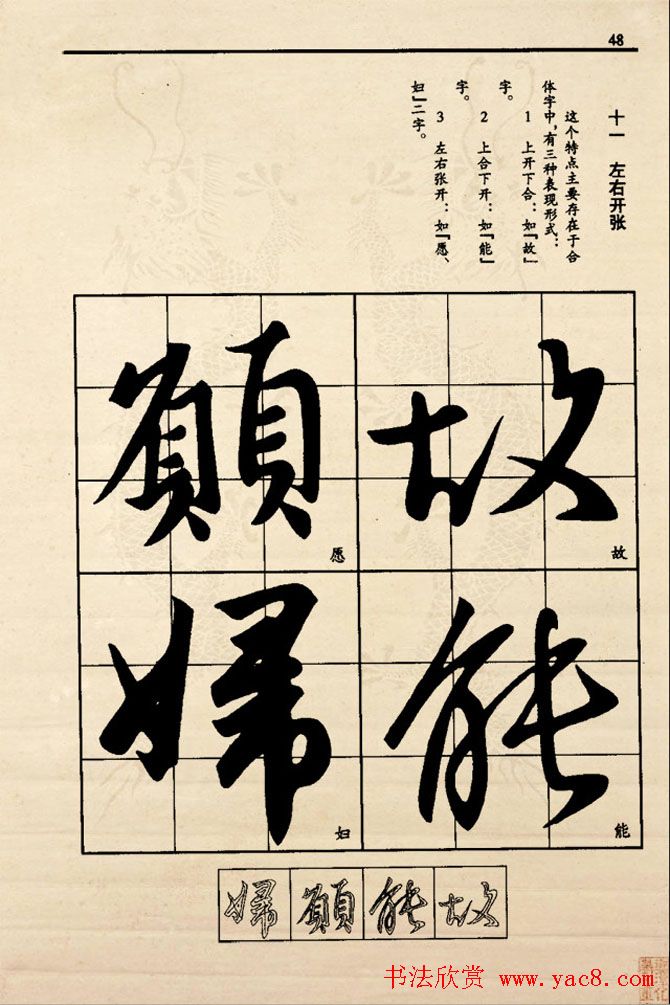 48
十一 左右开张
这个特点主要存在于合
体字中，有三种表现形式：
1 上开下合：如『故』
字。
2 上合下开：如『能』
字。
3 左右张开：如『愿、
妇』二字。
故
故
能
能
願
愿
婦
妇
故
能
願
婦
书法欣赏 www.yac8.com